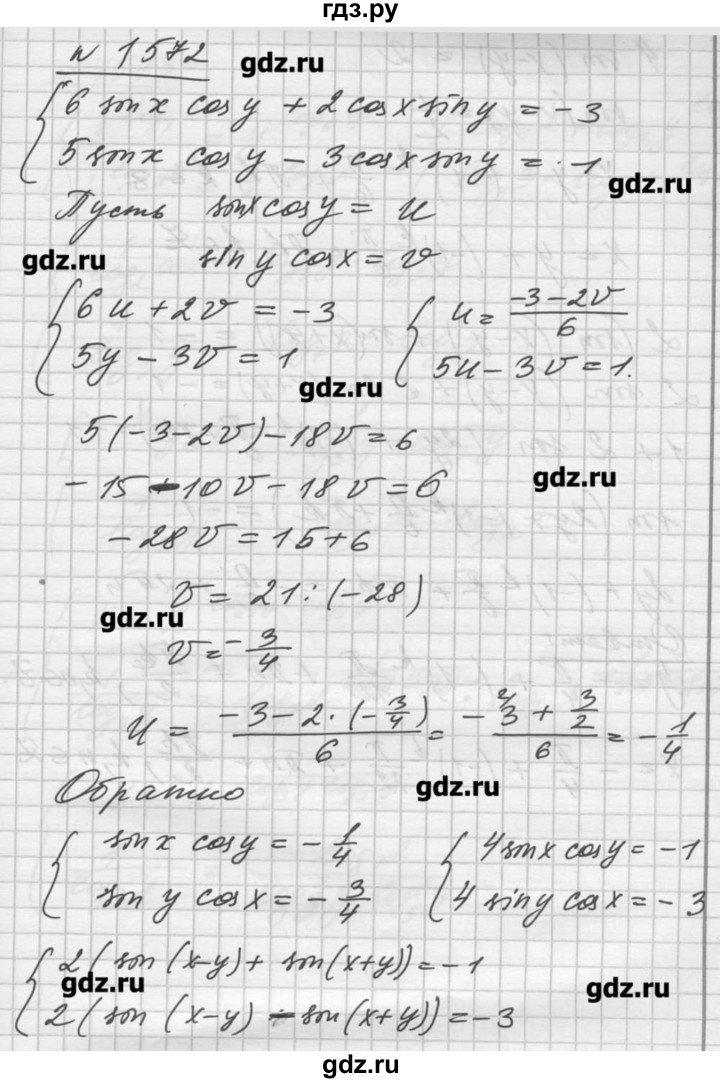 гдз.ру
№ 1572 gdz.ru
{ 6 sin x cos y + 2 cos x sin y = -3
5 sin x cos y - 3 cos x sin y = 1
gdz.ru
Пусть sin x cos y = u
gdz.ru sin y cos x = v
{ 6u + 2v = -3 { u = (-3-2v)/6
5y - 3v = 1 5u - 3v = 1.
gdz.ru
5(-3-2v) - 18v = 6
gdz.ru
-15 - 10v - 18v = 6
-28v = 15 + 6
v = 21 : (-28)
gdz.ru
v = -3/4
u = (-3-2·(-3/4))/6 = (-3 + 3/2)/6 = -1/4
Обратно gdz.ru
{ sin x cos y = -1/4 { 4 sin x cos y = -1
sin y cos x = -3/4 4 sin y cos x = -3
{ 2(sin(x-y) + sin(x+y)) = -1
gdz.ru gdz.ru
2(sin(x-y) - sin(x+y)) = -3
gdz.ru